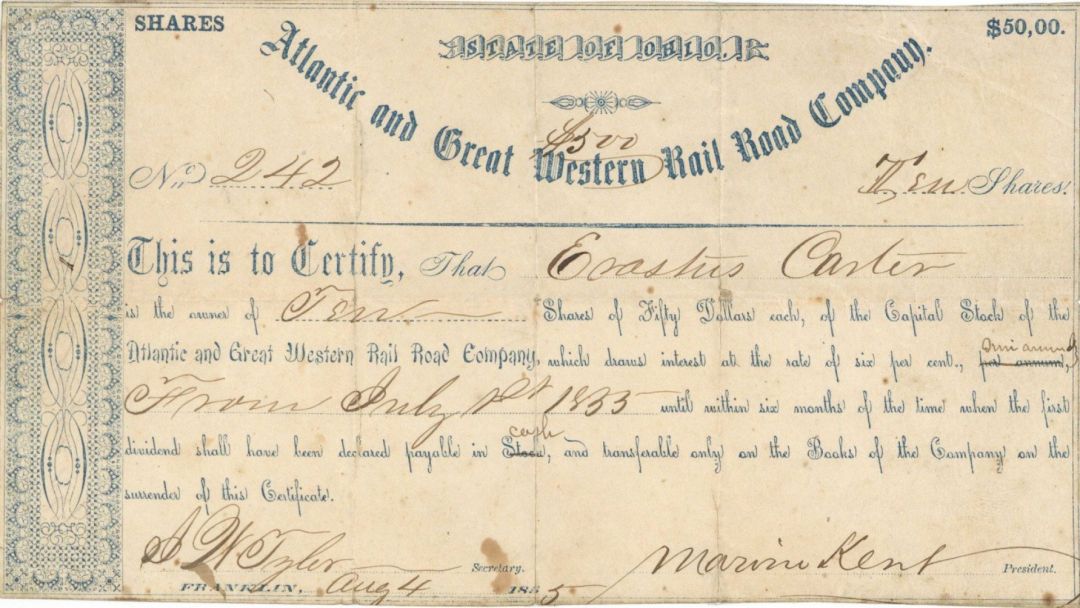 SHARES
$50,00.
STATE OF OHIO.
Atlantic and Great Western Rail Road Company.
$500
No. 242
Ten Shares.
This is to Certify, That Erastus Carter
is the owner of Ten Shares of Fifty Dollars each, of the Capital Stock of the
Atlantic and Great Western Rail Road Company, which draws interest at the rate of six per cent., per annum,
From July 1st 1855 until within six months of the time when the first
cash
dividend shall have been declared payable in Stock, and transferable only on the Books of the Company on the
surrender of this Certificate.
Tyler Secretary.
Marvin Kent President.
FRANKLIN, Aug 4 1855